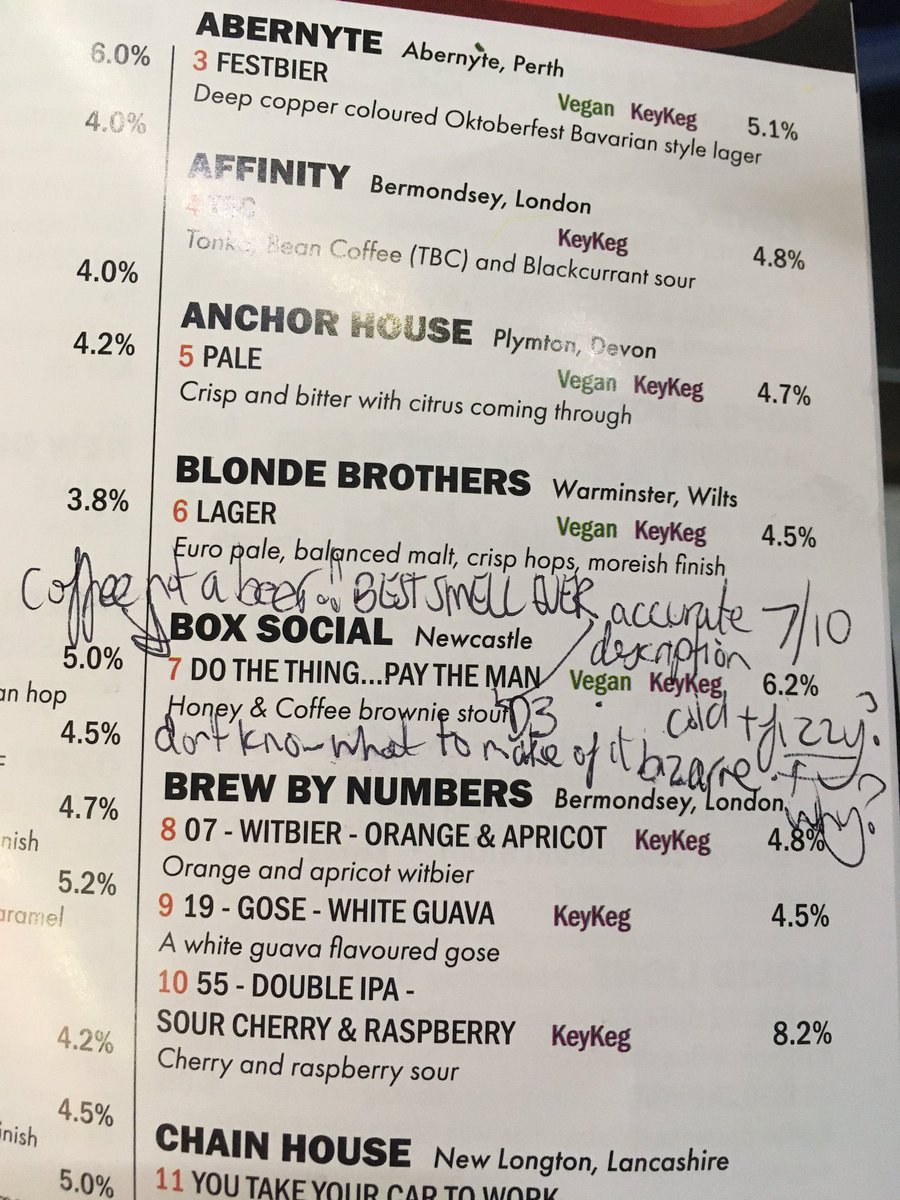 6.0%
4.0%
4.0%
4.2%
3.8%
5.0%
an hop
4.5%
4.7%
nish
5.2%
aramel
4.2%
4.5%
inish
5.0%
ABERNYTE Abernyte, Perth
3 FESTBIER Vegan KeyKeg 5.1%
Deep copper coloured Oktoberfest Bavarian style lager
AFFINITY Bermondsey, London
4 TBC KeyKeg 4.8%
Tonka, Bean Coffee (TBC) and Blackcurrant sour
ANCHOR HOUSE Plymton, Devon
5 PALE Vegan KeyKeg 4.7%
Crisp and bitter with citrus coming through
BLONDE BROTHERS Warminster, Wilts
6 LAGER Vegan KeyKeg 4.5%
Euro pale, balanced malt, crisp hops, moreish finish
Coffee not a beer BEST SMELL EVER accurate description 7/10
BOX SOCIAL Newcastle
7 DO THE THING...PAY THE MAN Vegan KeyKeg 6.2%
Honey & Coffee brownie stout D3 cold + fizzy?
don't know what to make of it bizarre. why?
BREW BY NUMBERS Bermondsey, London
8 07 - WITBIER - ORANGE & APRICOT KeyKeg 4.8%
Orange and apricot witbier
9 19 - GOSE - WHITE GUAVA KeyKeg 4.5%
A white guava flavoured gose
10 55 - DOUBLE IPA -
SOUR CHERRY & RASPBERRY KeyKeg 8.2%
Cherry and raspberry sour
CHAIN HOUSE New Longton, Lancashire
11 YOU TAKE YOUR CAR TO WORK